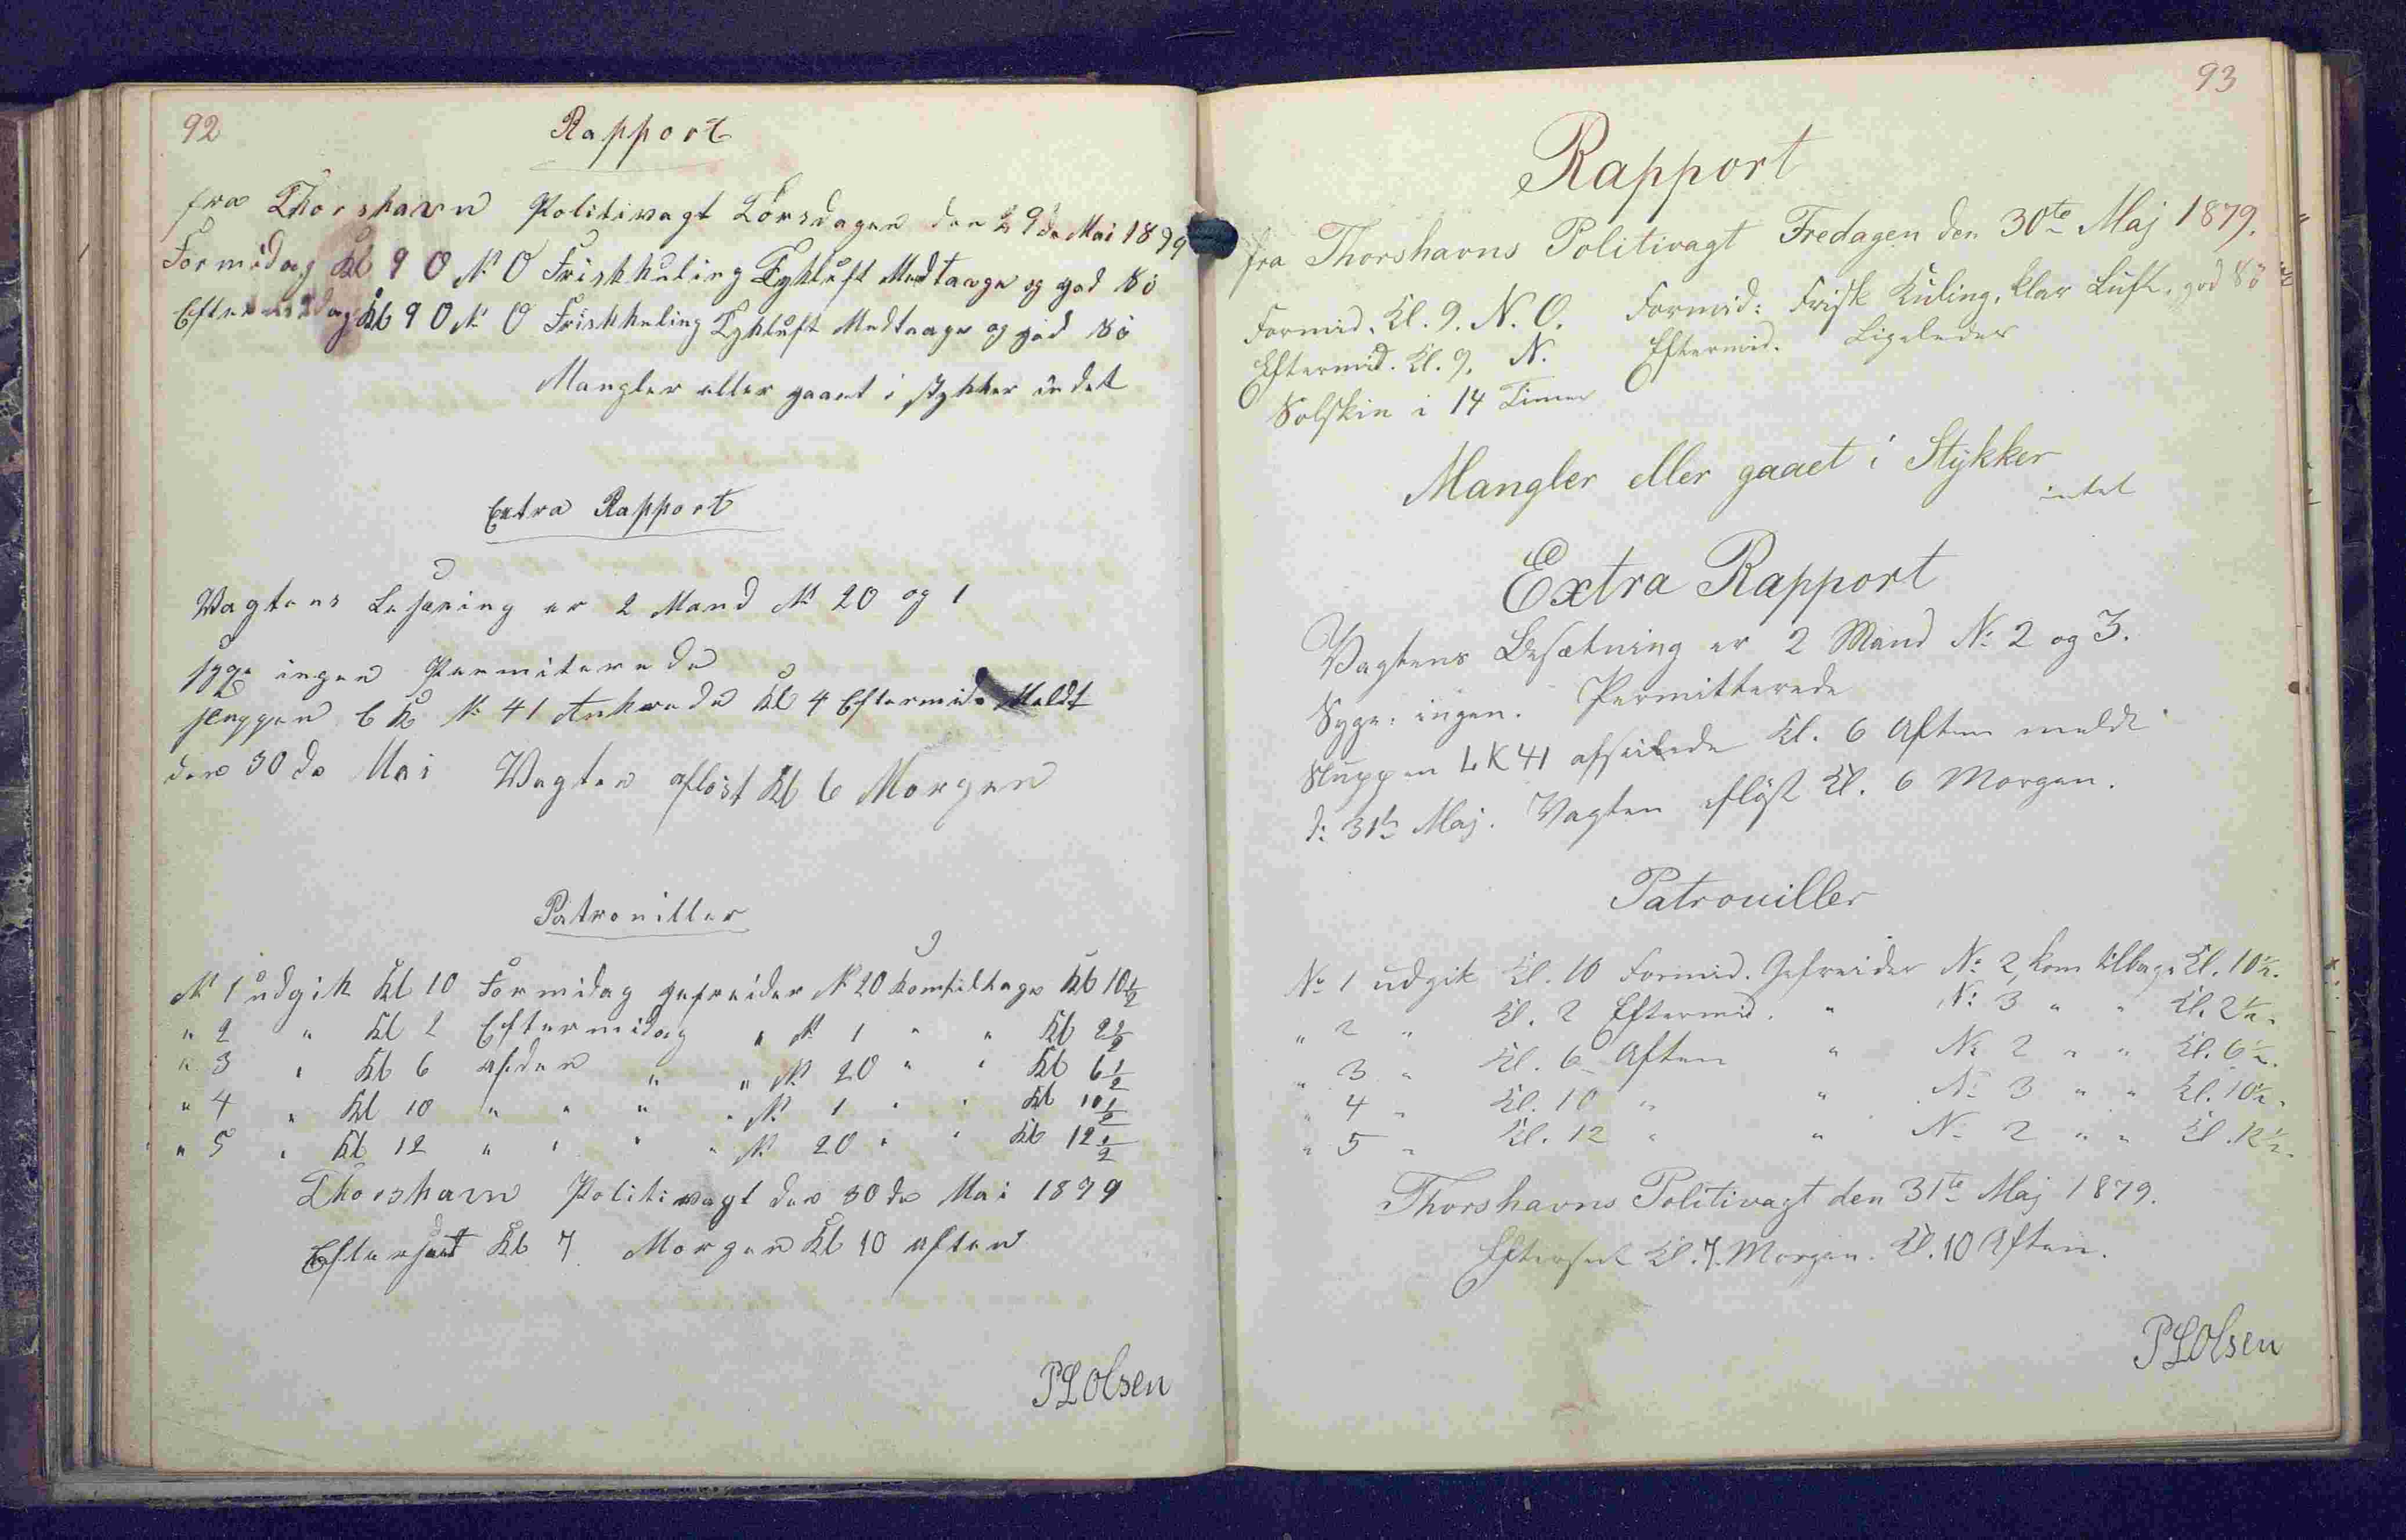 92
Rapport
fra Thorshavn Politivagt Torsdagen den 29de Mai 1879
Formidag Kl 9 O N O Friskkuling Tykluft Medtaage og god Sö
Eftermidag Kl 9 O N O Friskkuling Tykluft Medtaage og god Sö
Mangler eller gaaet i stykker indet
Extra Rapport
Vagtens Besæning er 2 Mand No 20 og 1
syge ingen Permiterede
sluppen No 41 Ankrede Kl 4 Eftermid. Meldt
den 30de Mai Vagten aflöst Kl 6 Morgen
Patroniller
No 1 udgik Kl 10 Formidag gefreider No 20 komtilbage Kl 10½
" 2 " Kl 2 Eftermidag " No 1 " " Kl 2½
" 3 " Kl 6 afden " " No 20 " " Kl 6½
" 4 " Kl 10 " " " " No 1 " " Kl 10½
" 5 " Kl 12 " " " " No 20 " " Kl 12½
Thorshavn Politivagt den 30de Mai 1879
Efterseet Kl 7 Morgen Kl 10 aften
PLOlsen
93
Rapport
fra Thorshavns Politivagt Fredagen den 30te Maj 1879.
Formid. Kl. 9. N. O. Formid: Frisk Kuling, klar Luft, god Sö
Eftermid. Kl. 9. N. Eftermid. Ligeledes
Solskin i 14 Timer
Mangler eller gaaet i Stykker
intet
Extra Rapport
Vagtens Besætning er 2 Mand No 2 og 3.
Syge: ingen. Permitterede
Sluppen LK 41 afseilede Kl. 6 Aften meldt
d: 31te Maj. Vagten aflöst Kl. 6 Morgen.
Patrouiller
No 1 udgik Kl. 10 Formid. Gefreider No 2, kom tilbage Kl. 10½.
" 2 " Kl. 2 Eftermid. " No 3 " " Kl. 2½.
" 3 " Kl. 6 Aften " No 2 " " Kl. 6½.
" 4 " Kl. 10 " " No 3 " " Kl. 10½.
" 5 " Kl. 12 " " No 2 " " Kl. 12½.
Thorshavns Politivagt den 31te Maj 1879.
Efterseet Kl. 7. Morgen. Kl. 10 Aften.
PLOlsen